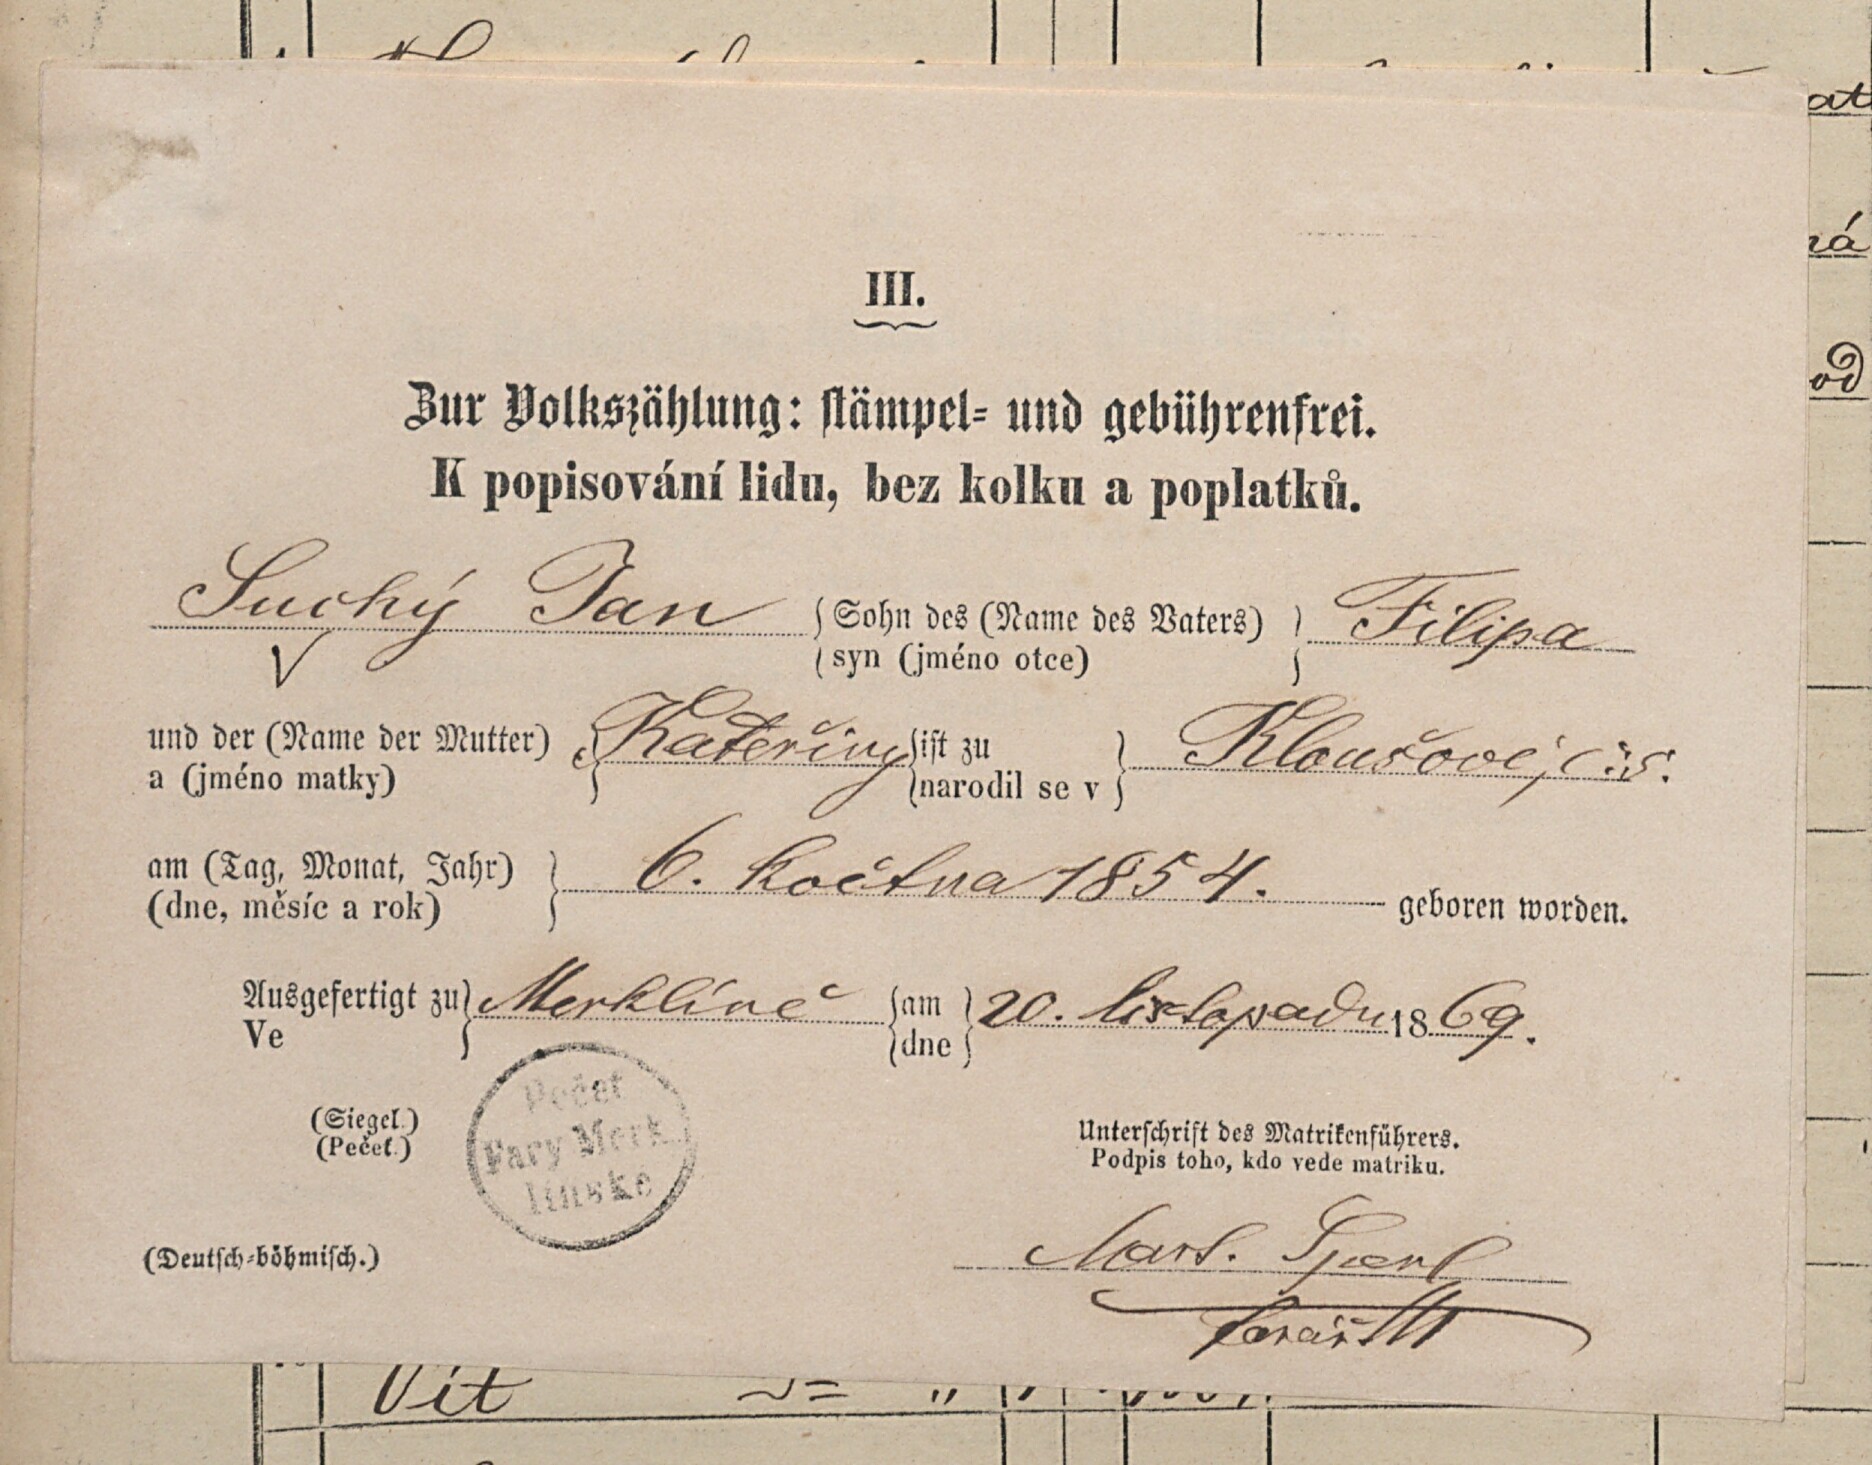 at
ná
od
III.
Zur Volkszählung: stämpel- und gebührenfrei.
K popisování lidu, bez kolku a poplatků.
Suchý Jan Sohn des (Name des Vaters) Filipa
syn (jméno otce)
und der (Name der Mutter) Kateřiny ist zu Kloušově, č: 5.
a (jméno matky) narodil se v
am (Tag, Monat, Jahr) 6. května 1854.
(dne, měsíc a rok) geboren worden.
Ausgefertigt zu Merklíně am 20. listopadu 1869.
Ve dne
(Siegel.)
(Pečeť.)
Pečeť
Fary Merk
línské
Unterschrift des Matrikenführers.
Podpis toho, kdo vede matriku.
(Deutsch-böhmisch.)
Mart.
farář
Vít